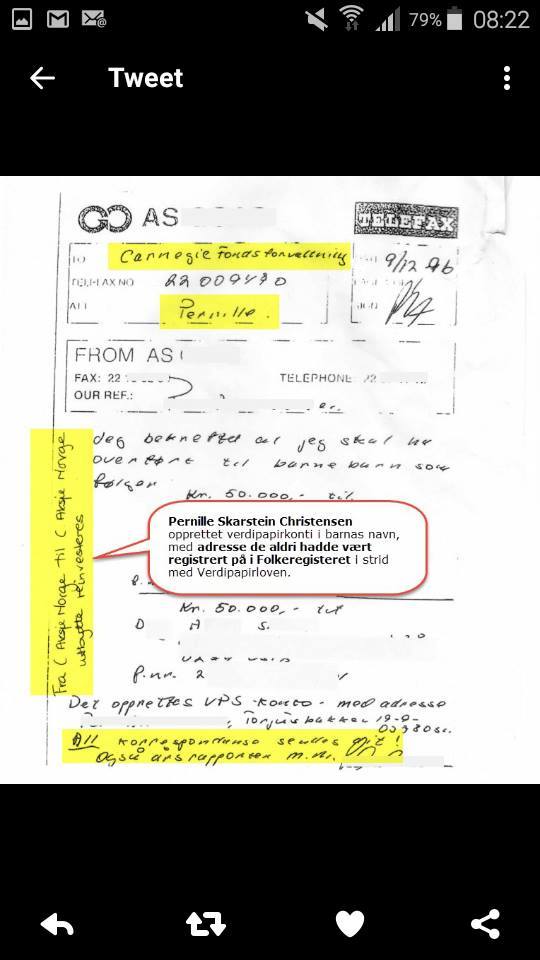 79% 08:22
Tweet
AS
TELEFAX
TO Carnegie Fondsforvaltning 9/12 96
TELEFAX NO 22 009470
ATT Pernille.
FROM AS
FAX: 22 TELEPHONE: 22
OUR REF.:
Jeg bekrefter at jeg skal ha
overført til barne barn som
følger
Kr. 50.000,- til
Fra C Aksje Norge til C Aksje Norge
utbytte reinvesteres
Pernille Skarstein Christensen
opprettet verdipapirkonti i barnas navn,
med adresse de aldri hadde vært
registrert på i Folkeregisteret i strid
med Verdipapirloven.
Kr. 50.000,- til
D A S.
P.nr. 2
Det opprettes VPS-konto- med adresse
All korrespondanse sendes
Også årsrapporter m.m.